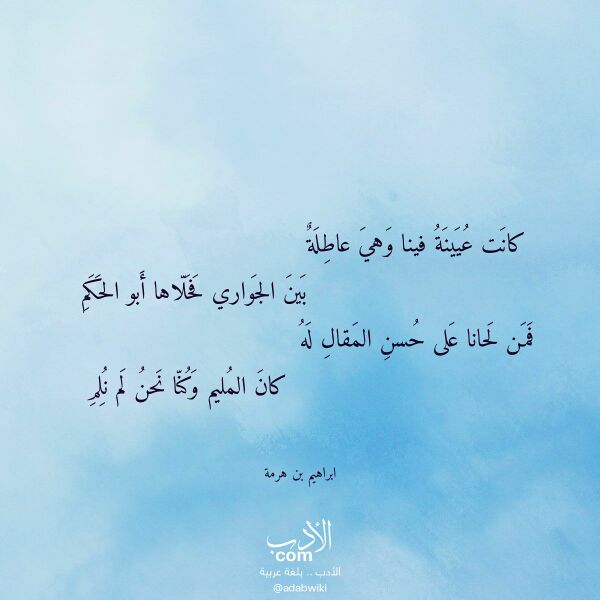 كانَت عُيَينَةُ فينا وَهيَ عاطِلَةٌ
بَينَ الجَواري فَحَلّاها أَبو الحَكَمِ
فَمَن لَحانا عَلى حُسنِ المَقالِ لَهُ
كانَ المُليم وَكُنّا نَحنُ لَم نُلِمِ
ابراهيم بن هرمة
الأدب
com
الأدب .. بلغة عربية
@adabwiki